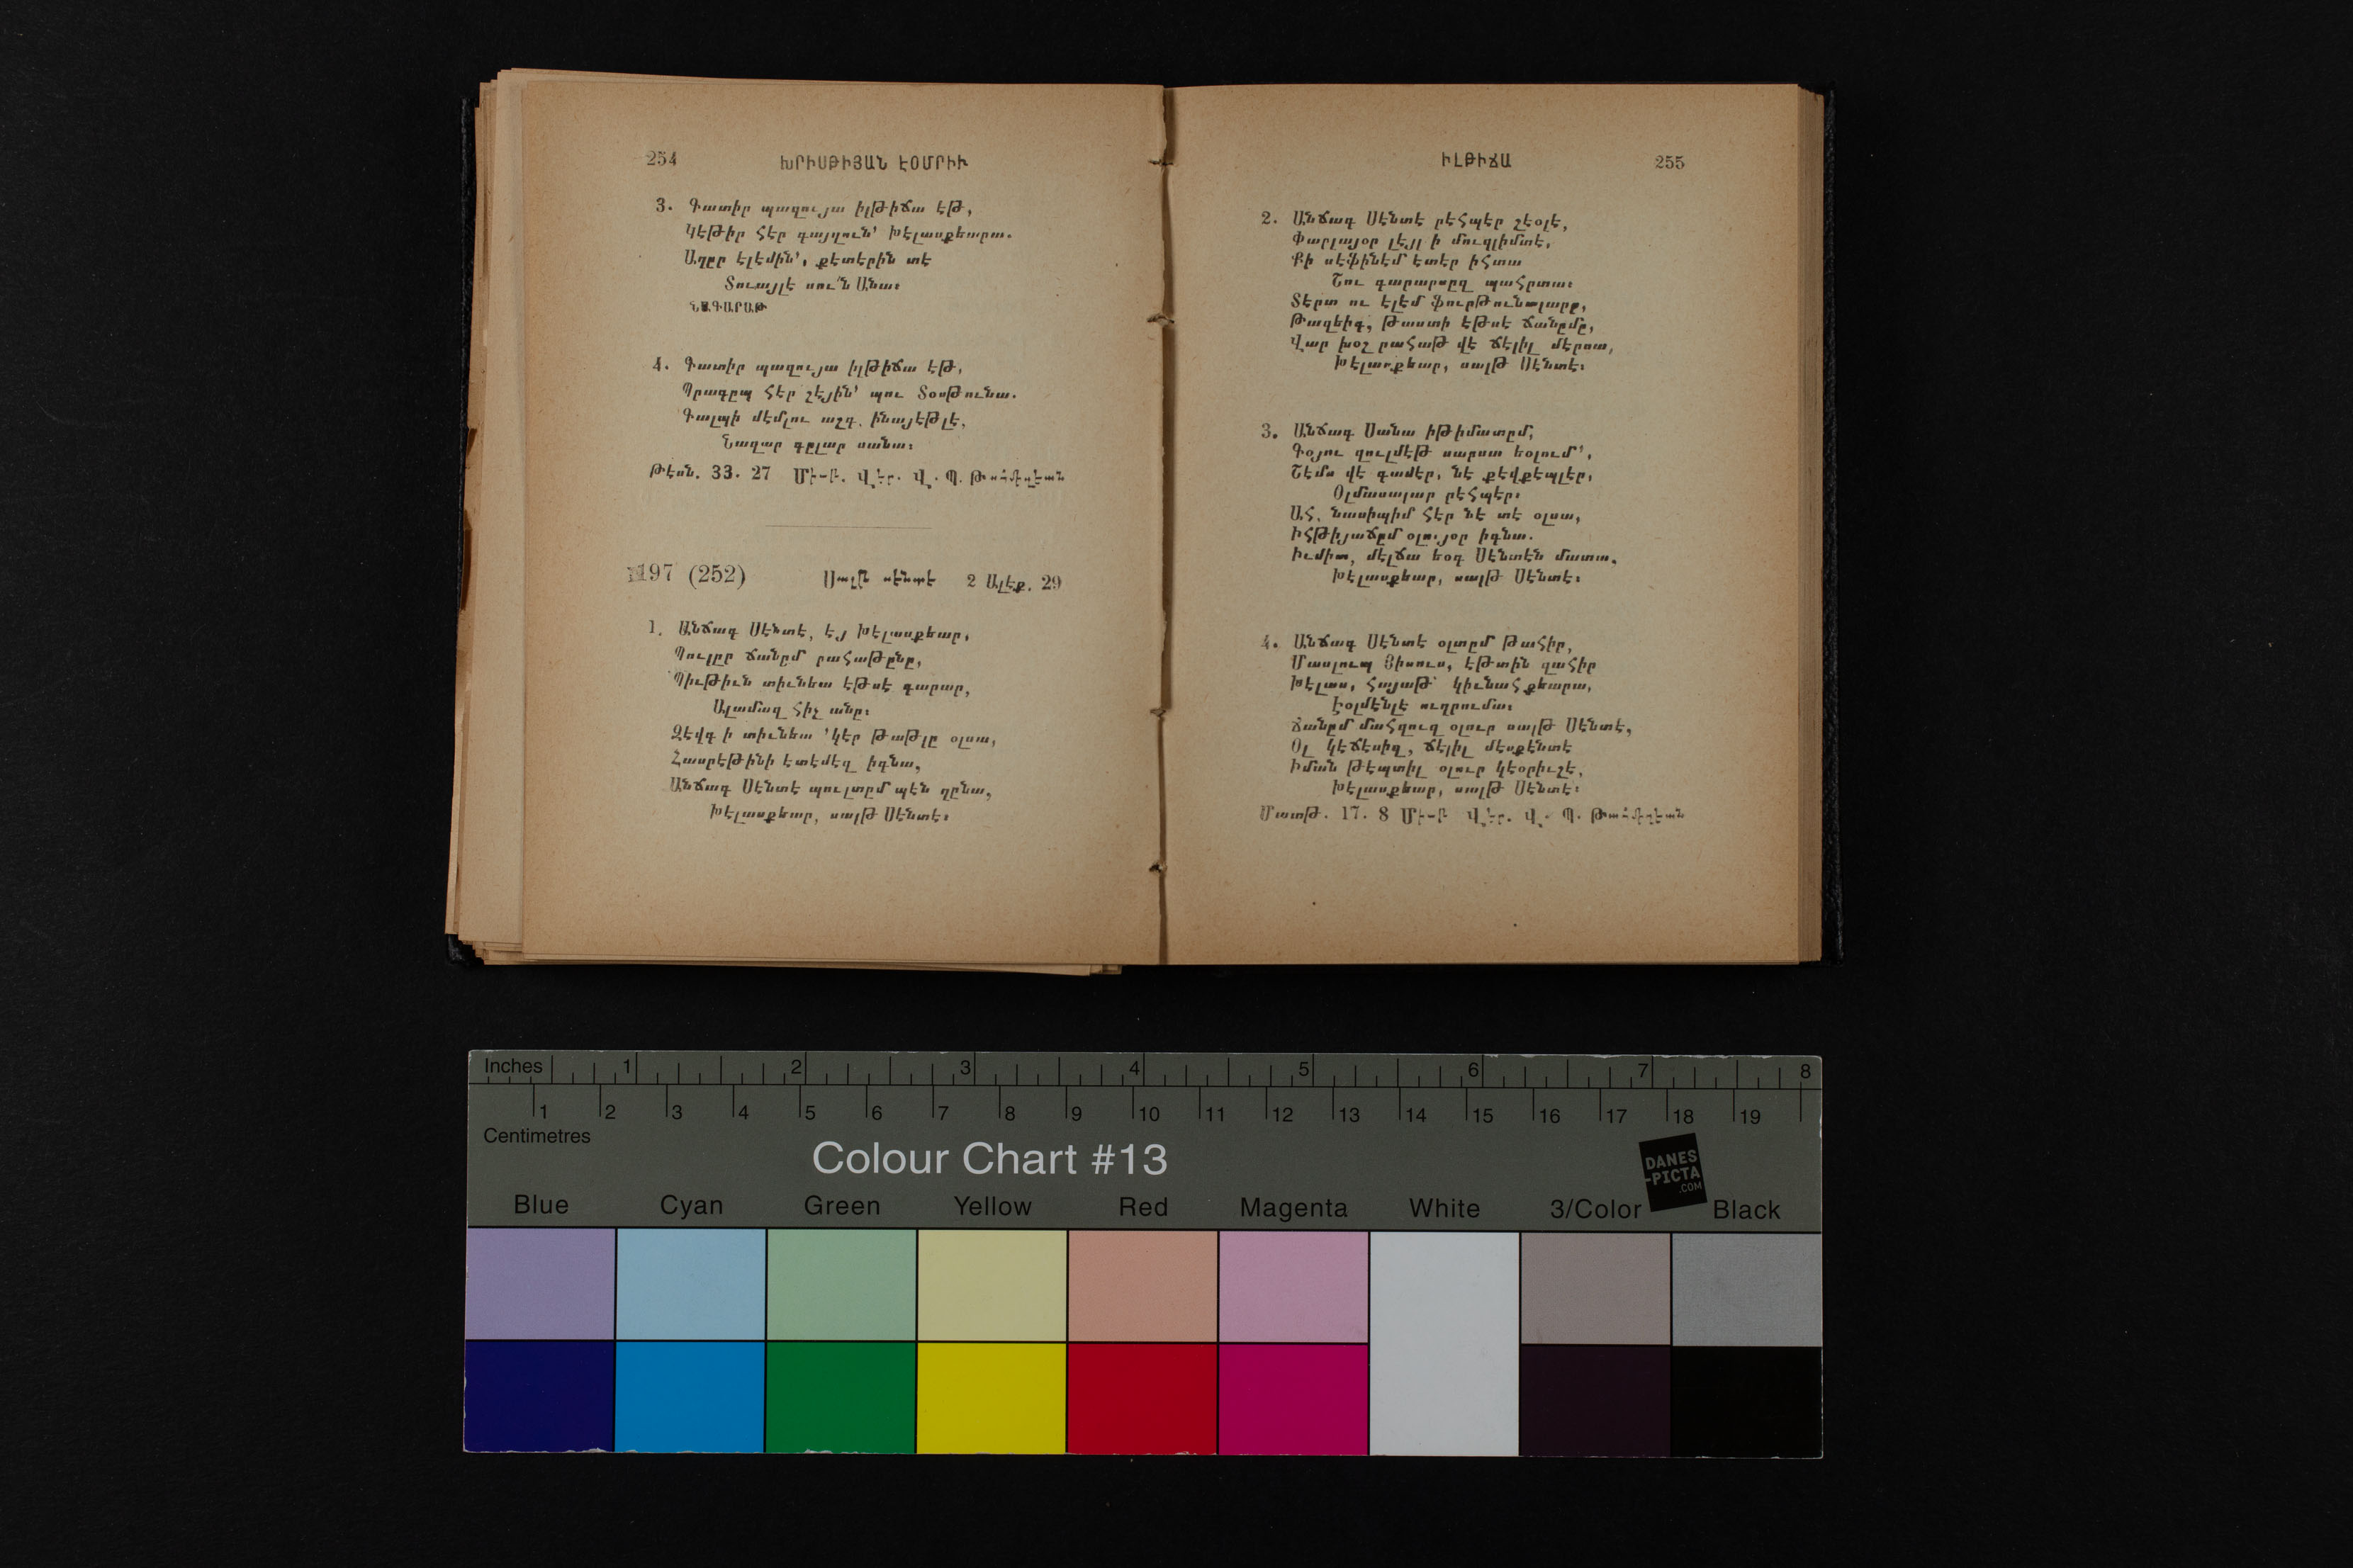 254 ԽՐԻՍԹԻՅԱՆ ԷՕՄՐԻՒ
3. Գատիր պազույա իլթիճա էթ,
Կէթիր հէր գայղուն՚ Խէլասքեարա.
Աղըր էլէմին՚, քէտէրին տէ
Տուայլէ սու՛ն Անա։
ՆԱԳԱՐԱԹ
4. Գատիր պազույա իլթիճա էթ,
Պրագըպ հէր շէյին՚ պու Տօսթունա.
Գալպի մէմլու աշգ, ինայէթլէ,
Նազար գըլար սանա։
Թէսն. 33. 27 Վէր. Վ. Պ.
197 (252) Սալթ սէնտէ 2 Ալէք. 29
1. Անճագ Սէնտէ, էյ Խէլասքեար,
Պուլըր ճանըմ րահաթընը,
Պիւթիւն տիւնեա էթսէ գարար,
Ալամազ հիչ անը։
Զէվգ ի տիւնեա ՚կէր թաթլը օլսա,
Հասրէթինի էտէմէզ իգնա,
Անճագ Սէնտէ պուլտըմ պէն ղընա,
Խէլասքեար, սալթ Սէնտէ։
ԻԼԹԻՃԱ 255
2. Անճագ Սէնտէ րէհպէր շէօլէ,
Փարլայօր լէյլ ի մուզլիմտէ,
Քի սէֆինէմ էտէր իհտա
Շու գարարսըզ պահրտա։
Տէրտ ու էլէմ ֆուրթունալարը,
Թազեիգ, թաստի էթսէ ճանըմը,
Վար խօշ րահաթ վէ ճէլիլ մէրսա,
Խէլասքեար, սալթ Սէնտէ։
3. Անճագ Սանա իթիմատըմ,
Գօյու զուլմէթ սարսա եօլում՚,
Շէմս վէ գամէր, նէ քէվքէպլէր,
Օլմասալար րէհպէր։
Ահ, նասիպիմ հէր նէ տէ օլսա,
Իհթիյաճըմ օլույօր իգնա.
Իւմիտ, մէլճա եօգ Սէնտէն մատա,
Խէլասքեար, սալթ Սէնտէ։
4. Անճագ Սէնտէ օլտըմ թահիր,
Մասլուպ Յիսուս, էթտին զահիր
Խէլաս, հայաթ՝ կիւնահքեարա,
Էօլմէնլէ ուղրումա։
Ճանըմ մահզուզ օլուր սալթ Սէնտէ,
Օլ կէճէսիզ, ճէլիլ մէսքէնտէ
Իման թէպտիլ օլուր կէօրիւշէ,
Խէլասքեար, սալթ Սէնտէ։
Մատթ. 17. 8 Վէր. Վ. Պ.
Inches 1 2 3 4 5 6 7 8
1 2 3 4 5 6 7 8 9 10 11 12 13 14 15 16 17 18 19
Centimetres
Colour Chart #13
DANES
-PICTA
.COM
Blue Cyan Green Yellow Red Magenta White 3/Color Black